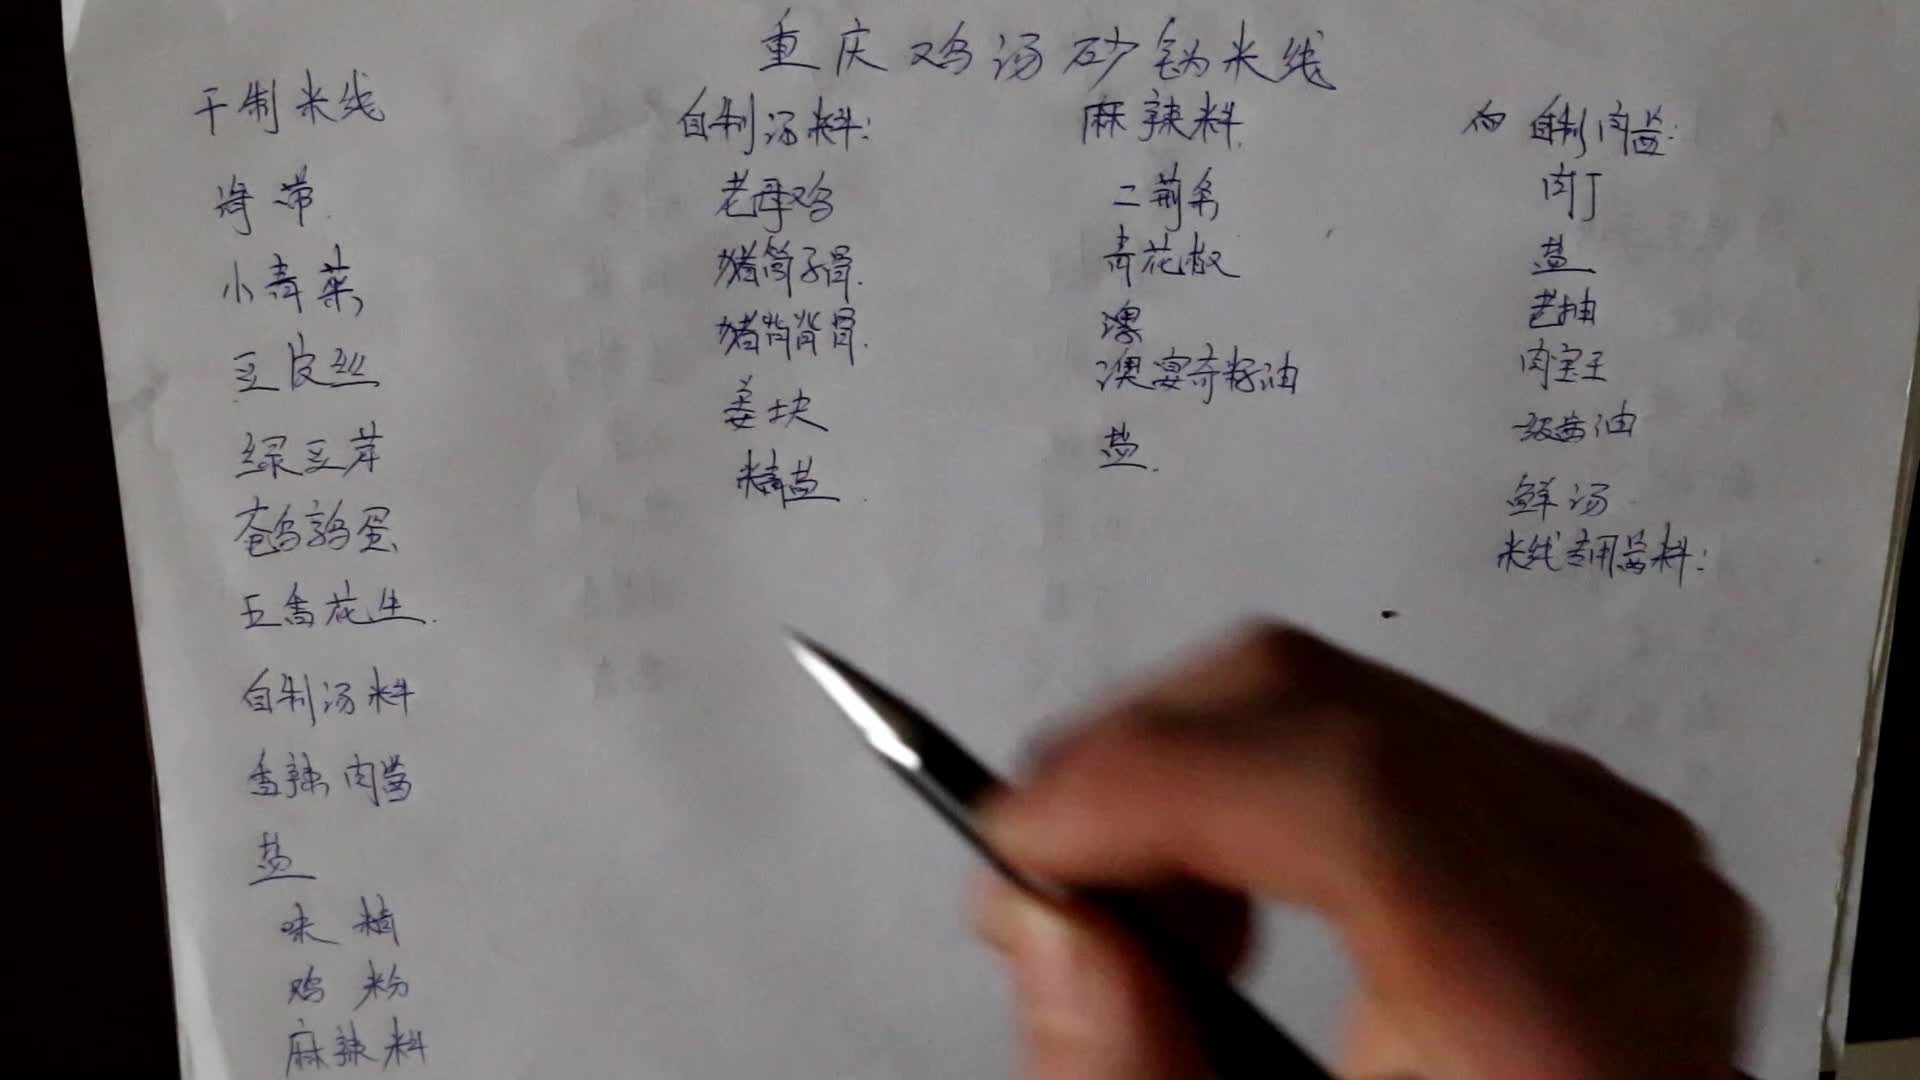 重庆鸡汤砂锅米线
干制米线
海带
小青菜
豆皮丝
绿豆芽
鹌鹑蛋
五香花生
自制汤料
香辣肉酱
盐
味精
鸡粉
麻辣料
自制汤料:
老母鸡
猪筒子骨
猪背骨
姜块
精盐
麻辣料
二荆条
青花椒
澳
澳宴奇籽油
盐
自制肉酱:
肉丁
盐
老抽
肉宝王
级酱油
鲜汤
米线专用酱料: